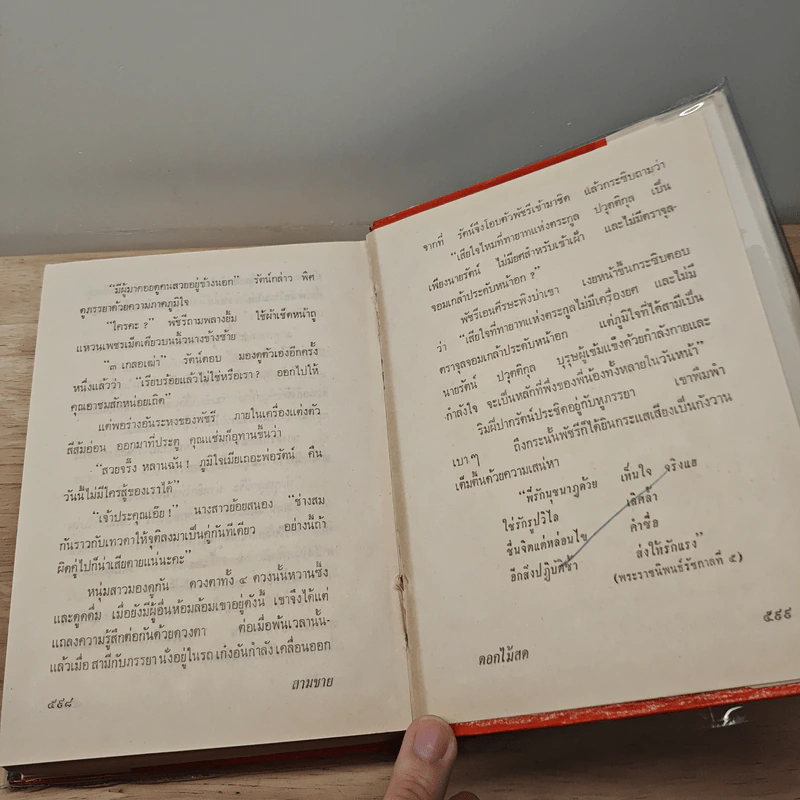 “มีผู้มาคอยดูคนสวยอยู่ข้างนอก” รัตน์กล่าว พิศ
ดูภรรยาด้วยความภาคภูมิใจ
“ใครคะ?” พัชรีถามพลางยิ้ม ใช้ผ้าเช็ดหน้าถู
แหวนเพชรเม็ดเดียวบนนิ้วนางข้างซ้าย
“๓ เกลอเฒ่า” รัตน์ตอบ มองดูตัวเองอีกครั้ง
หนึ่งแล้วว่า “เรียบร้อยแล้วไม่ใช่หรือเรา? ออกไปให้
คุณอาชมสักหน่อยเถิด”
แต่พอร่างอันระหงของพัชรี ภายในเครื่องแต่งตัว
สีส้มอ่อน ออกมาที่ประตู คุณแช่มก็อุทานขึ้นว่า
“สวยจริ๊ง หลานฉัน! ภูมิใจเมียเถอะพ่อรัตน์ คืน
วันนี้ไม่มีใครสู้ของเราได้”
“เจ้าประคุณเอ๊ย!” นางสาวย้อยสนอง “ช่างสม
กันราวกับเทวดาให้จุติลงมาเป็นคู่กันทีเดียว อย่างนี้ถ้า
ผิดคู่ไปก็น่าเสียดายแน่นะคะ”
หนุ่มสาวมองดูกัน ดวงตาทั้ง ๔ ดวงนั้นหวานซึ้ง
และดูดดื่ม เมื่อยังมีผู้อื่นห้อมล้อมเขาอยู่ดังนี้ เขาจึงได้แต่
แถลงความรู้สึกต่อกันด้วยดวงตา ต่อเมื่อพ้นเวลานั้น-
แล้วเมื่อ สามีกับภรรยา นั่งอยู่ในรถ เก๋งอันกำลัง เคลื่อนออก
สามชาย
๕๙๘
จากที่ รัตน์จึงโอบตัวพัชรีเข้ามาชิด แล้วกระซิบถามว่า
“เสียใจไหมที่ทายาทแห่งตระกูล ปวุตติกุล เป็น
เพียงนายรัตน์ ไม่มียศสำหรับเข้าเฝ้า และไม่มีตราจุล-
จอมเกล้าประดับหน้าอก?”
พัชรีเอนศีรษะพิงบ่าเขา เงยหน้าขึ้นกระซิบตอบ
ว่า “เสียใจที่ทายาทแห่งตระกูลไม่มีเครื่องยศ และไม่มี
ตราจุลจอมเกล้าประดับหน้าอก แต่ภูมิใจที่ได้สามีเป็น
นายรัตน์ ปวุตติกุล บุรุษผู้เข้มแข็งด้วยกำลังกายและ
กำลังใจ จะเป็นหลักที่พึ่งของพี่น้องทั้งหลายในวันหน้า”
ริมฝีปากรัตน์ประชิดอยู่กับหูภรรยา เขาพึมพำ
เบาๆ ถึงกระนั้นพัชรีก็ได้ยินกระแสเสียงเป็นกังวาน
เต็มตื้นด้วยความเสน่หา
“พี่รักนุชนาฎด้วย เห็นใจ จริงแฮ
ใช่รักรูปวิไล เลิศล้ำ
ชื่นจิตแต่หล่อนไข คำซื่อ
อีกสึงปฏิบัติซ้ำ ส่งให้รักแรง”
(พระราชนิพนธ์รัชกาลที่ ๕)
ดอกไม้สด
๕๙๙